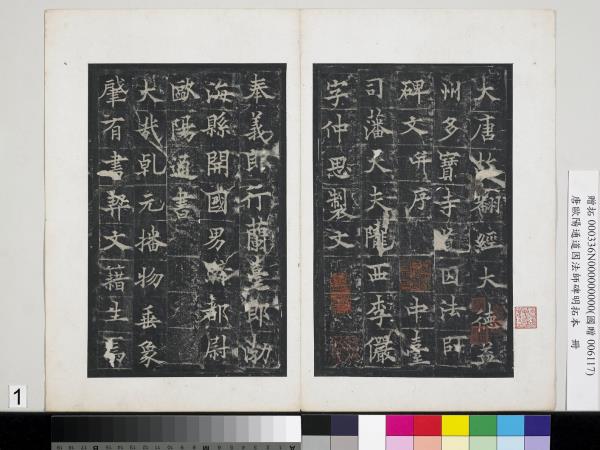 大唐故翻經大德益
州多寶寺道因法師
碑文并序　中臺
司藩大夫隴西李儼
字仲思製文
奉義郎行蘭臺郎渤
海縣開國男騎都尉
歐陽通書
大哉乾元播物垂象
肇有書契文籍生焉
贈拓 000336N000000000(國贈 006117)
唐歐陽通道因法師碑明拓本 冊
1